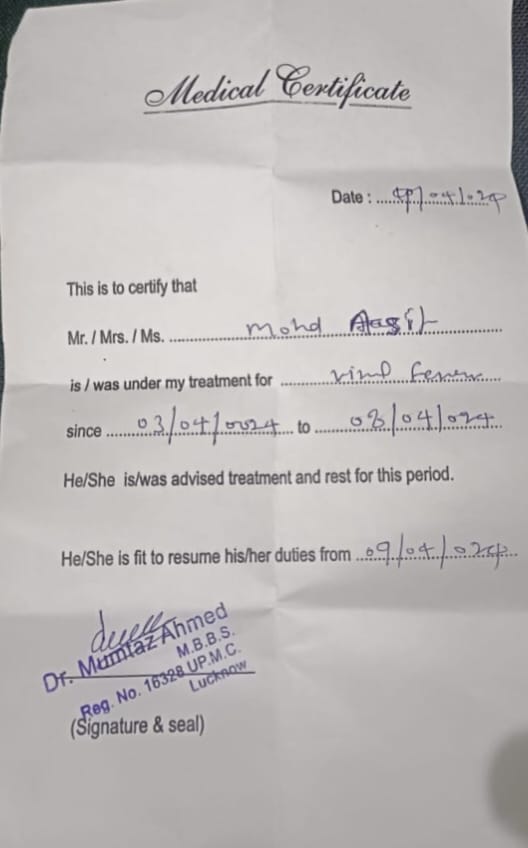 Medical Certificate
Date : ...../04/024
This is to certify that
Mr. / Mrs. / Ms. ..... Mohd .....
is / was under my treatment for .....
since ..... 03/04/0024 ..... to ..... 08/04/024 .....
He/She is/was advised treatment and rest for this period.
He/She is fit to resume his/her duties from ..... 09/04/024 .....
Dr. Mumtaz Ahmed
M.B.B.S.
Reg. No. 16328 UP.M.C.
Lucknow
(Signature & seal)